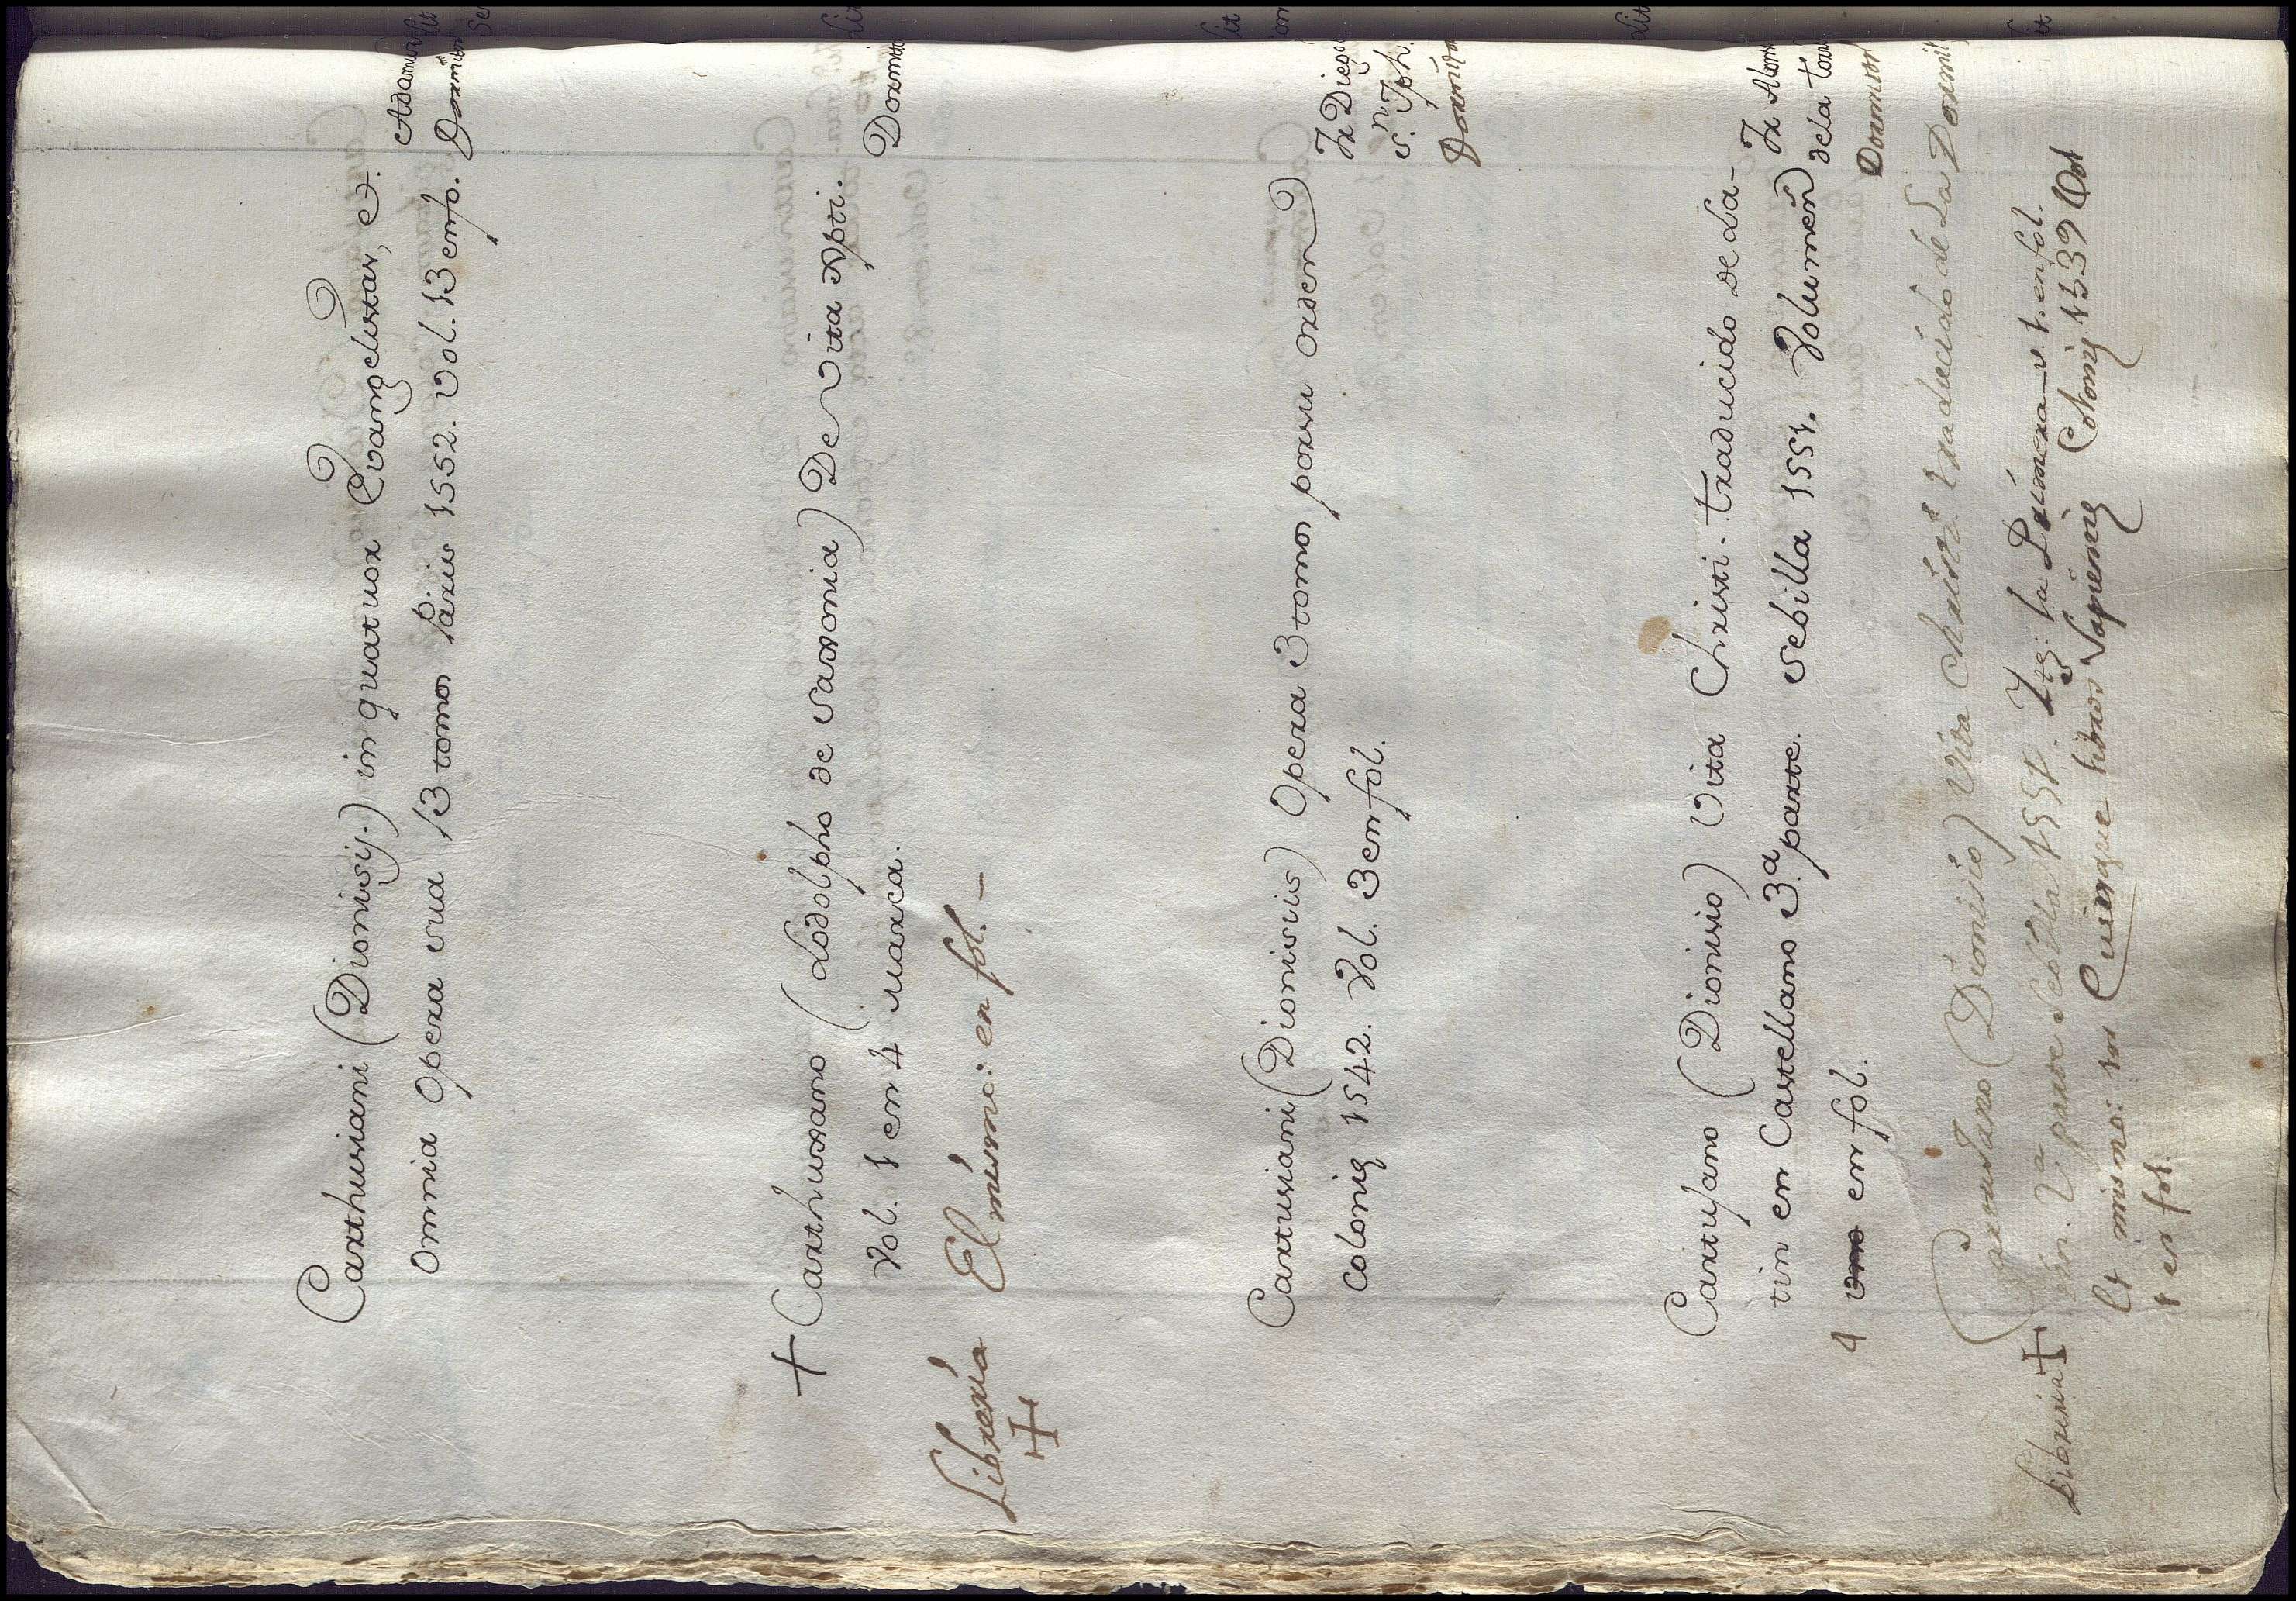 Carthusiani (Dionisij.) in quatuor Evangelistas, &.
Omnia Opera sua 13 tomos Paris 1552. Vol. 13 en fo.
Dormito
+ Carthuxano (Lodolpho de Saxonia) De Vita Xpti.
Vol. 1 en 4 marca.
Dormito
Libreria El mismo: en fol. –
+
Cartusiani (Dionisiis) Opera 3 tomos por su orden
Colonię 1542. Vol. 3 en fol.
Fr Diego
S.n Joh.
Dormito
Cartusano (Dionisio) Vita Christi. traducido de La-
tin en Castellano 3.a parte. Sebilla 1551. Volumen
4 uno en fol.
Fr Alons
de la torr
Dormitor
Cartustano (Dionisio) Vita Christi traducido de La
Dormit
Libreria + tin. 2.a parte Sebilla 1551. Ytē: la Primera v. 1. en fol.
El mismo: in Quinque libros Sapientię Colonię 1539 Vol
1 en fol.